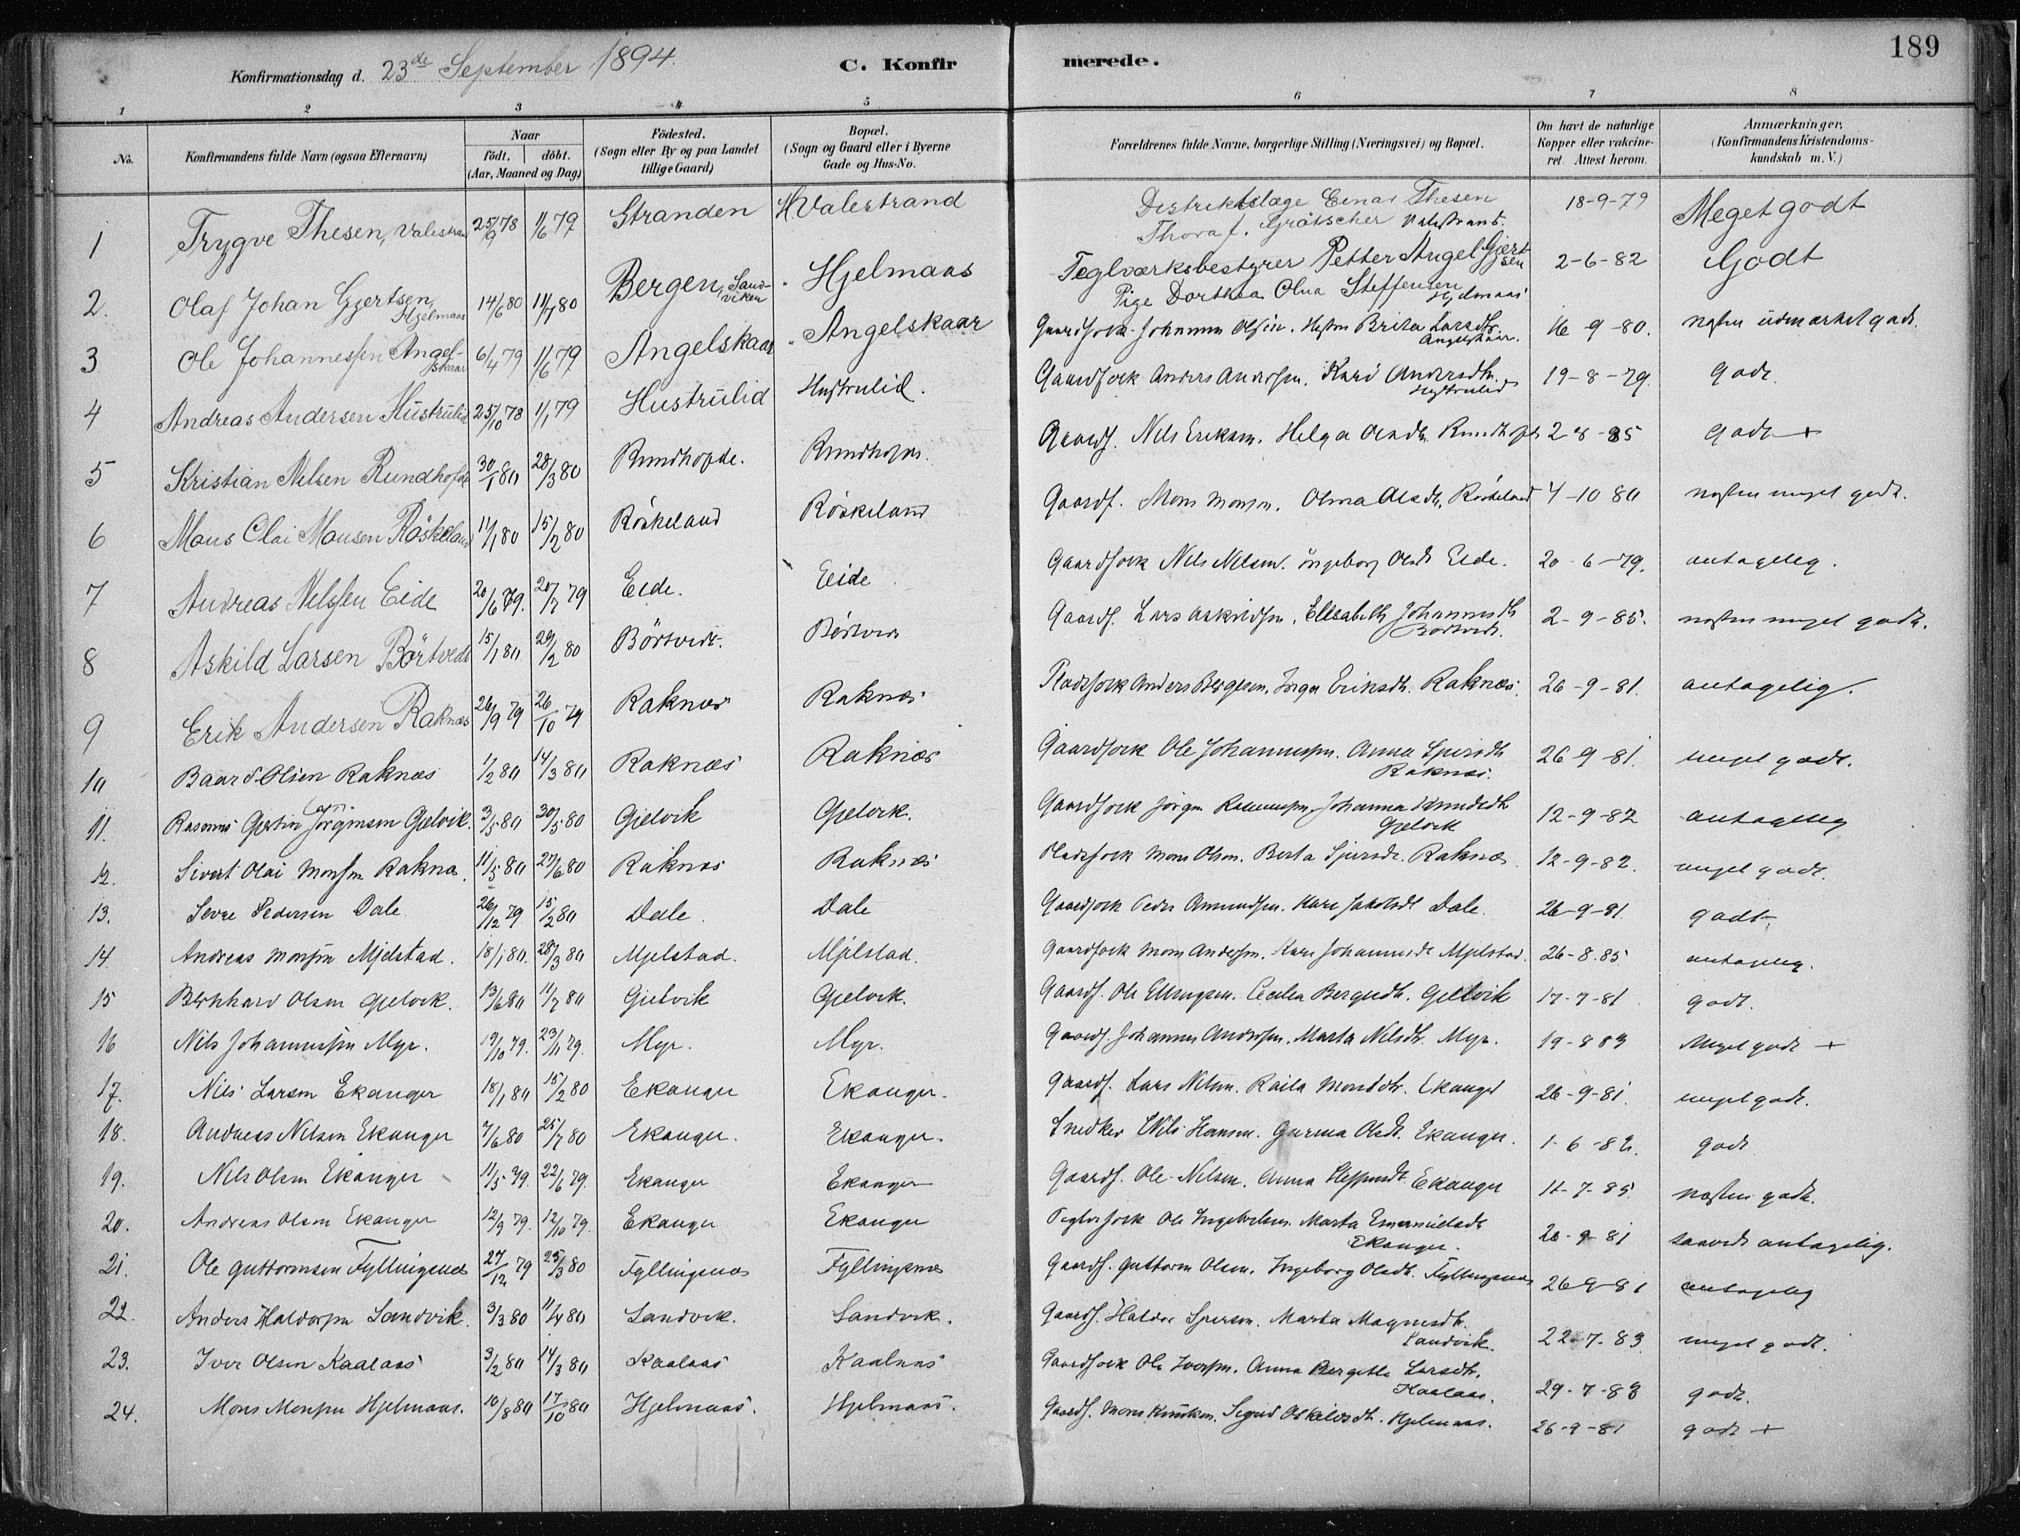 189
Konfirmationsdag d. 23de September 1894.
C. Konfirmerede.
1 2 3 4 5 6 7 8
No.
Konfirmandens fulde Navn (ogsaa Efternavn)
Naar
födt. döbt.
(Aar, Maaned og Dag)
Födested.
(Sogn eller By og paa Landet
tillige Gaard)
Bopæl.
(Sogn og Gaard eller i Byerne
Gade og Hus-No.
Forældrenes fulde Navne, borgerlige Stilling (Næringsvei) og Bopæl.
Om havt de naturlige
Kopper eller vakcine-
ret. Attest herom.
Anmærkninger,
(Konfirmandens Kristendoms-
kundskab m. V.)
1 Trygve Thesen, Valestrand 25/9 78 11/6 79 Stranden Valestrand Distriktslæge Einar Thesen 18-9-79 Meget godt
Thora f. Grötscher Valestrand.
2. Olaf Johan Gjertsen, Hjelmaas 14/6 80 11/7 80 Bergen, Sandviken Hjelmaas Teglværksbestyrer Petter Angel Gjertsen 2-6-82 Godt
Pige Dorthea Olua Steffensen Hjelmaas
3 Ole Johannessen Angelskaar 6/4 79 1/6 79 Angelskaar Angelskaar Gaardfolk Johannes Olsen. Brita Larsdtr. Angelskaar. 16-9-80. næsten udmærket godt.
4 Andreas Andersen Hustrulid 25/10 78 1/1 79 Hustrulid Hustrulid. Gaardfolk Anders Andersen. Kari Andersdtr. Hustrulid 19-8-79. godt.
5 Kristian Nilsen Rundhofde 30/1 80 28/3 80 Rundhofde. Rundhofde. Gaardf. Nils Eriksen. Helga Olsdtr. Rundhofde 2-8-85 godt +
6 Mons Olai Monsen Röskeland 11/1 80 15/2 80 Röskeland Röskeland Gaardf. Mons Monsen. Olina Olsdtr. Röskeland 4-10-80 næsten meget godt.
7 Andreas Nilssen Eide 20/6 79. 20/7 79 Eide. Eide Gaardfolk Nils Nilsen. Ingeborg Olsdtr Eide. 20-6-79. antagelig.
8 Askild Larsen Börtvedt 15/1 80 29/2 80 Börtvedt. Börtvedt Gaardf. Lars Askildsen. Elisabeth Johannesdtr Börtvedt. 2-9-85. næsten meget godt.
9 Erik Andersen Raknæs 26/9 79 26/10 79 Raknæs Raknæs Pladsfolk Anders Bergesen. Inger Eriksdtr. Raknæs. 26-9-81. antagelig.
10 Baard Olsen Raknæs 1/2 80 14/3 80 Raknæs Raknæs Gaardfolk Ole Johannessen. Anna Sjursdtr Raknæs. 26-9-81. meget godt.
11. Rasmus Gjertin Jörginsen Gjelvik. 3/5 80 30/5 80 Gjelvik Gjelvik. Gaardfolk Jörgen Rasmussen. Johanna Gjelvik 12-9-82 antagelig
12. Sivert Olai Monsen Raknæs. 11/5 80 27/6 80 Raknæs Raknæs Pladsfolk Mons Olsen. Berta Sjursdtr. Raknæs. 12-9-82. meget godt.
13. Sevre Pedersen Dale 26/12 79 15/2 80 Dale. Dale Gaardfolk Peder Amundsen. Kari Jakobsdtr Dale. 26-9-81. godt.
14. Andreas Monsen Mjelstad. 18/1 80. 28/3 80 Mjelstad. Mjelstad. Gaardfolk Mons Andersen. Kari Johannesdtr Mjelstad. 26-8-85. antagelig.
15 Bernhard Olsen Gjelvik. 13/6 80 11/7 80 Gjelvik Gjelvik. Gaardf. Ole Ellingsen. Cecilia Bergesdtr. Gjelvik 17-7-81 godt.
16 Nils Johannessen Myr. 19/10 79. 23/11 79. Myr. Myr. Gaardf. Johannes Andersen. Marta Nilsdtr. Myr. 19-8 83 Meget godt +
17. Nils Larsen Ekanger 18/1 80 15/2 80 Ekanger Ekanger. Gaardf. Lars Nilsen. Raila Monsdtr. Ekanger 26-9-81. meget godt.
18. Andreas Nilsen Ekanger 7/6 80 25/7 80 Ekanger. Ekanger. Snedker Nils Hansen. Gurina Olsdtr. Ekanger. 1-6-82. godt
19. Nils Olsen Ekanger 11/5 79. 22/6 79. Ekanger Ekanger Gaardf. Ole Nilsen. Anna Ekanger 11-7-85. næsten godt.
20. Andreas Olsen Ekanger 12/9 79. 12/10 79. Ekanger Ekanger Ole Ingebrigtsen. Marta Emanuelsdtr Ekanger. 20-9-81 saavidt antagelig.
21. Ole Guttormsen Fyllingsnæs 27/12 79 25/3 80 Fyllingsnæs Fyllingsnæs Gaardf. Guttorm Olsen. Ingeborg Olsdtr. Fyllingsnæs 26-9-81 antagelig
22. Anders Haldorsen Sandvik. 3/3 80 11/4 80 Sandvik. Sandvik. Gaardf. Haldor Iversen. Marta Magnesdtr. Sandvik. 22-7-83. meget godt.
23. Iver Olsen Kaalaas 3/2 80 14/3 80 Kaalaas Kaalaas Gaardfolk Ole Iversen. Anna Bergitte Larsdtr. Kaalaas. 29-7-83 godt.
24. Mons Monsen Hjelmaas. 10/8 80 17/10 80 Hjelmaas. Hjelmaas. Gaardf. Mons Knudsen. Sigrid Askildsdtr. Hjelmaas. 26-9-81 godt +